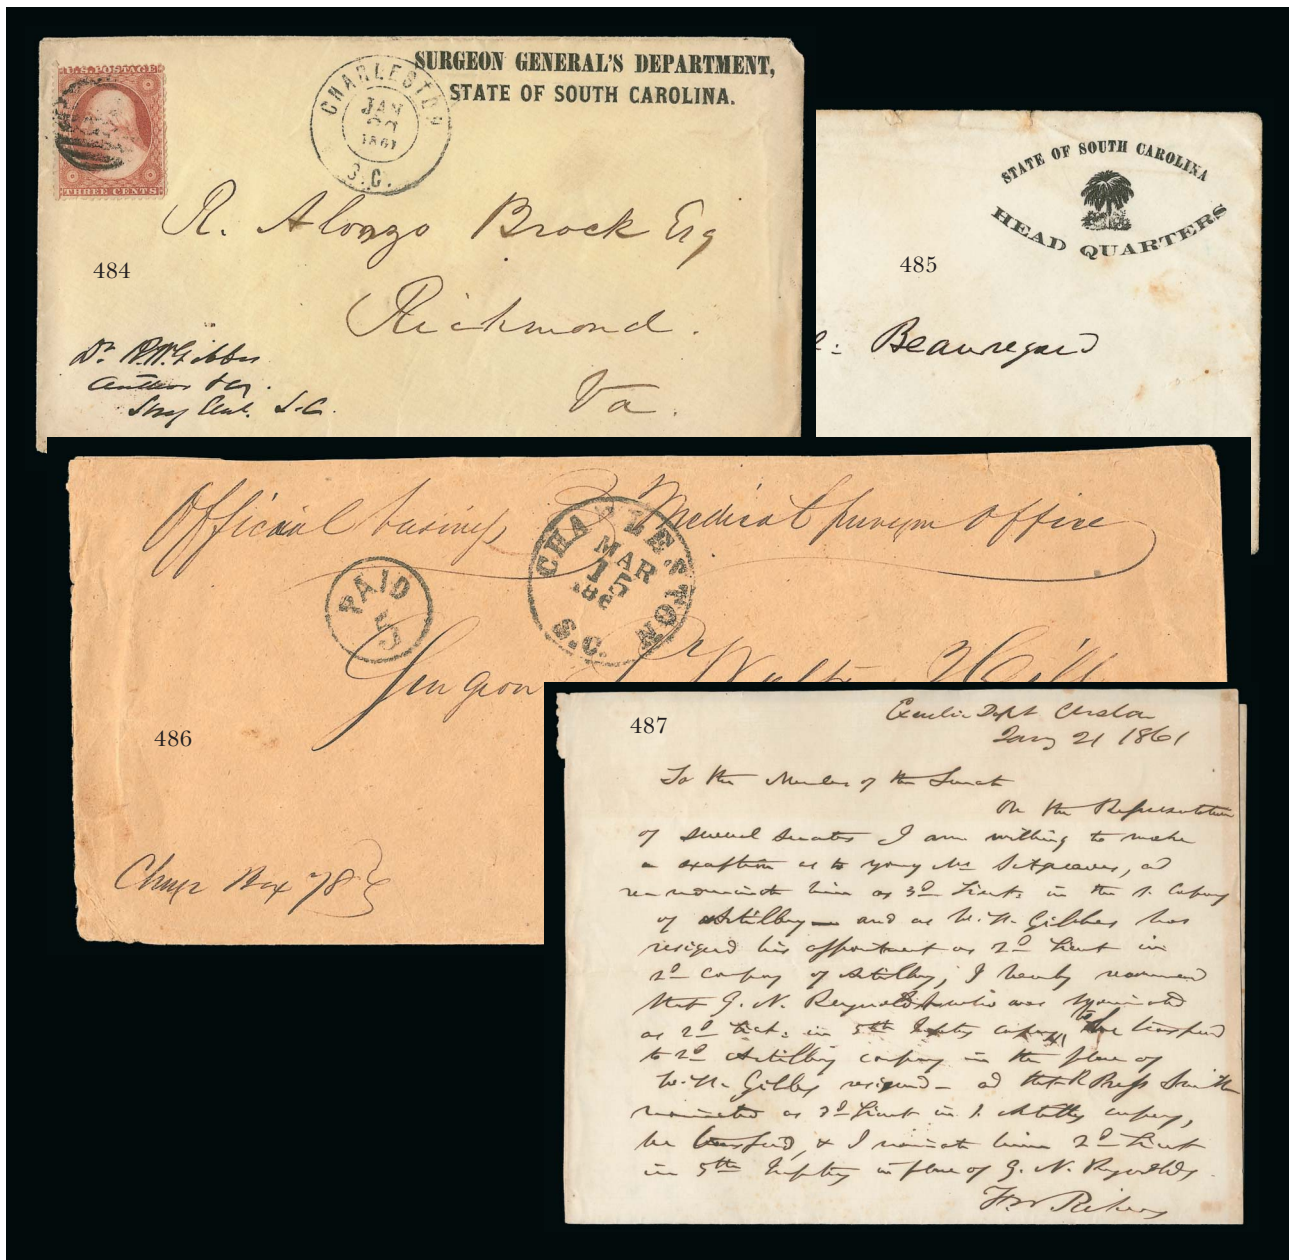 U.S. POSTAGE
THREE CENTS
CHARLESTON
JAN
1861
S.C.
SURGEON GENERAL'S DEPARTMENT,
STATE OF SOUTH CAROLINA.
R. Alonzo Brock Esq
484
Richmond.
Va.
Dr. R.W. Gibbes
S.C.
STATE OF SOUTH CAROLINA
HEAD QUARTERS
485
Beauregard
Official business Medical purveyor office
PAID
5
CHARLESTON
MAR
15
186
S.C.
Surgeon
486
Chge Box 78
487
Executive Dept Charleston
Jany 21 1861
To the Members of the Senate
On the Representation
of several Senators I am willing to make
an exception as to young Mr Sitgreaves, ad
renominate him as 3d Lieut. in the 1. Compy
of Artillery — and as W. H. Gibbes has
resigned his appointment as 2d Lieut in
2d compny of Artillery; I hereby recommend
that G. N. Reynolds who was nominated
as 2d Lieut. in 5th Infty compy be transferred
to 2d Artillery compny in the place of
W. H. Gibbes resigned - ad that Press Smith
nominated as 3d Lieut in 1. Artillery compny,
be transferred, & I nominate him 2d Lieut
in 5th Infty in place of G. N. Reynolds.
F W Pickens